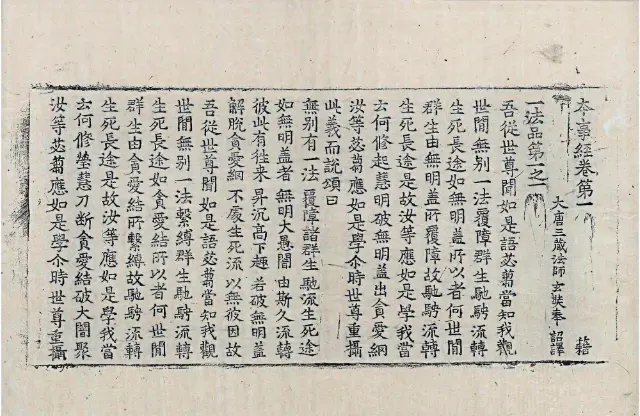 夲事經卷第一 籍
大唐三藏法師玄奘奉 詔譯
一法品第一之一
吾從世尊聞如是語苾蒭當知我觀
世間無別一法覆障群生馳騁流轉
生死長途如無明盖所以者何世間
群生由無明盖所覆障故馳騁流轉
生死長途是故汝等應如是學我當
云何修起慧明破無明盖出貪愛網
汝等苾蒭應如是學尒時世尊重攝
此義而說頌曰
無別有一法 覆障諸群生 馳流生死途
如無明盖者 無明大愚闇 由斯久流轉
彼此有往来 昇沉高下趣 若破無明盖
解脫貪愛網 不處生死流 以無彼因故
吾從世尊聞如是語苾蒭當知我觀
世間無別一法繫縛群生馳騁流轉
生死長途如貪愛結所以者何世間
群生由貪愛結所繫縛故馳騁流轉
生死長途是故汝等應如是學我當
云何修瑩慧刀斷貪愛結破大闇聚
汝等苾蒭應如是學尒時世尊重攝